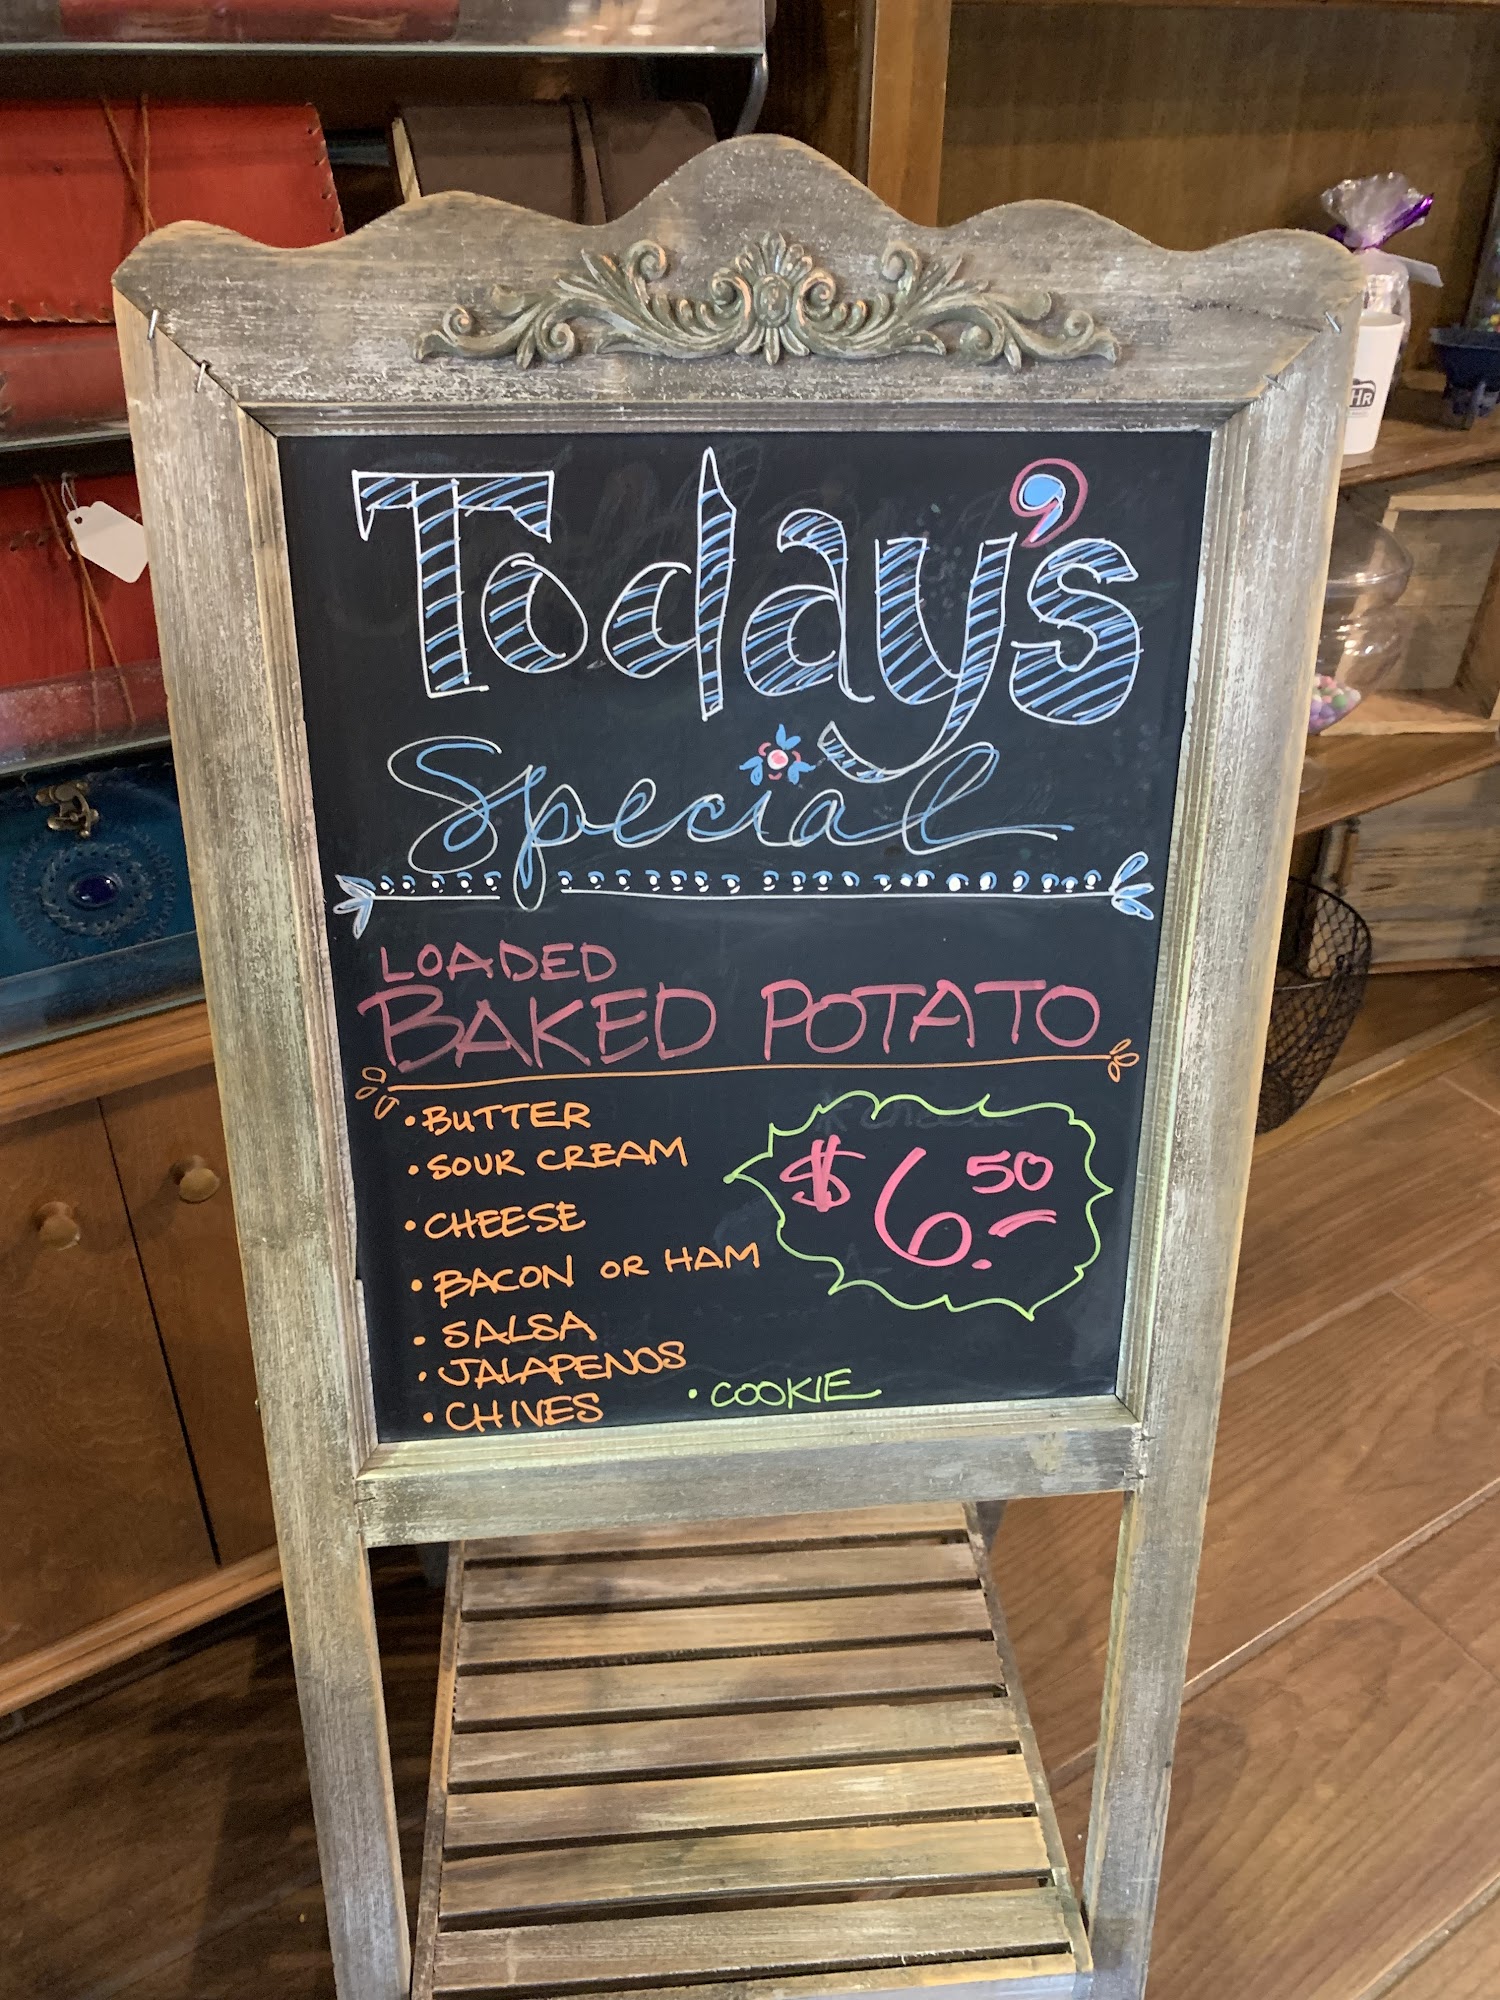 Today's
Special
LOADED
BAKED POTATO
• BUTTER
• SOUR CREAM
• CHEESE
• BACON OR HAM
• SALSA
• JALAPENOS
• CHIVES
$6.50
• COOKIE
HR